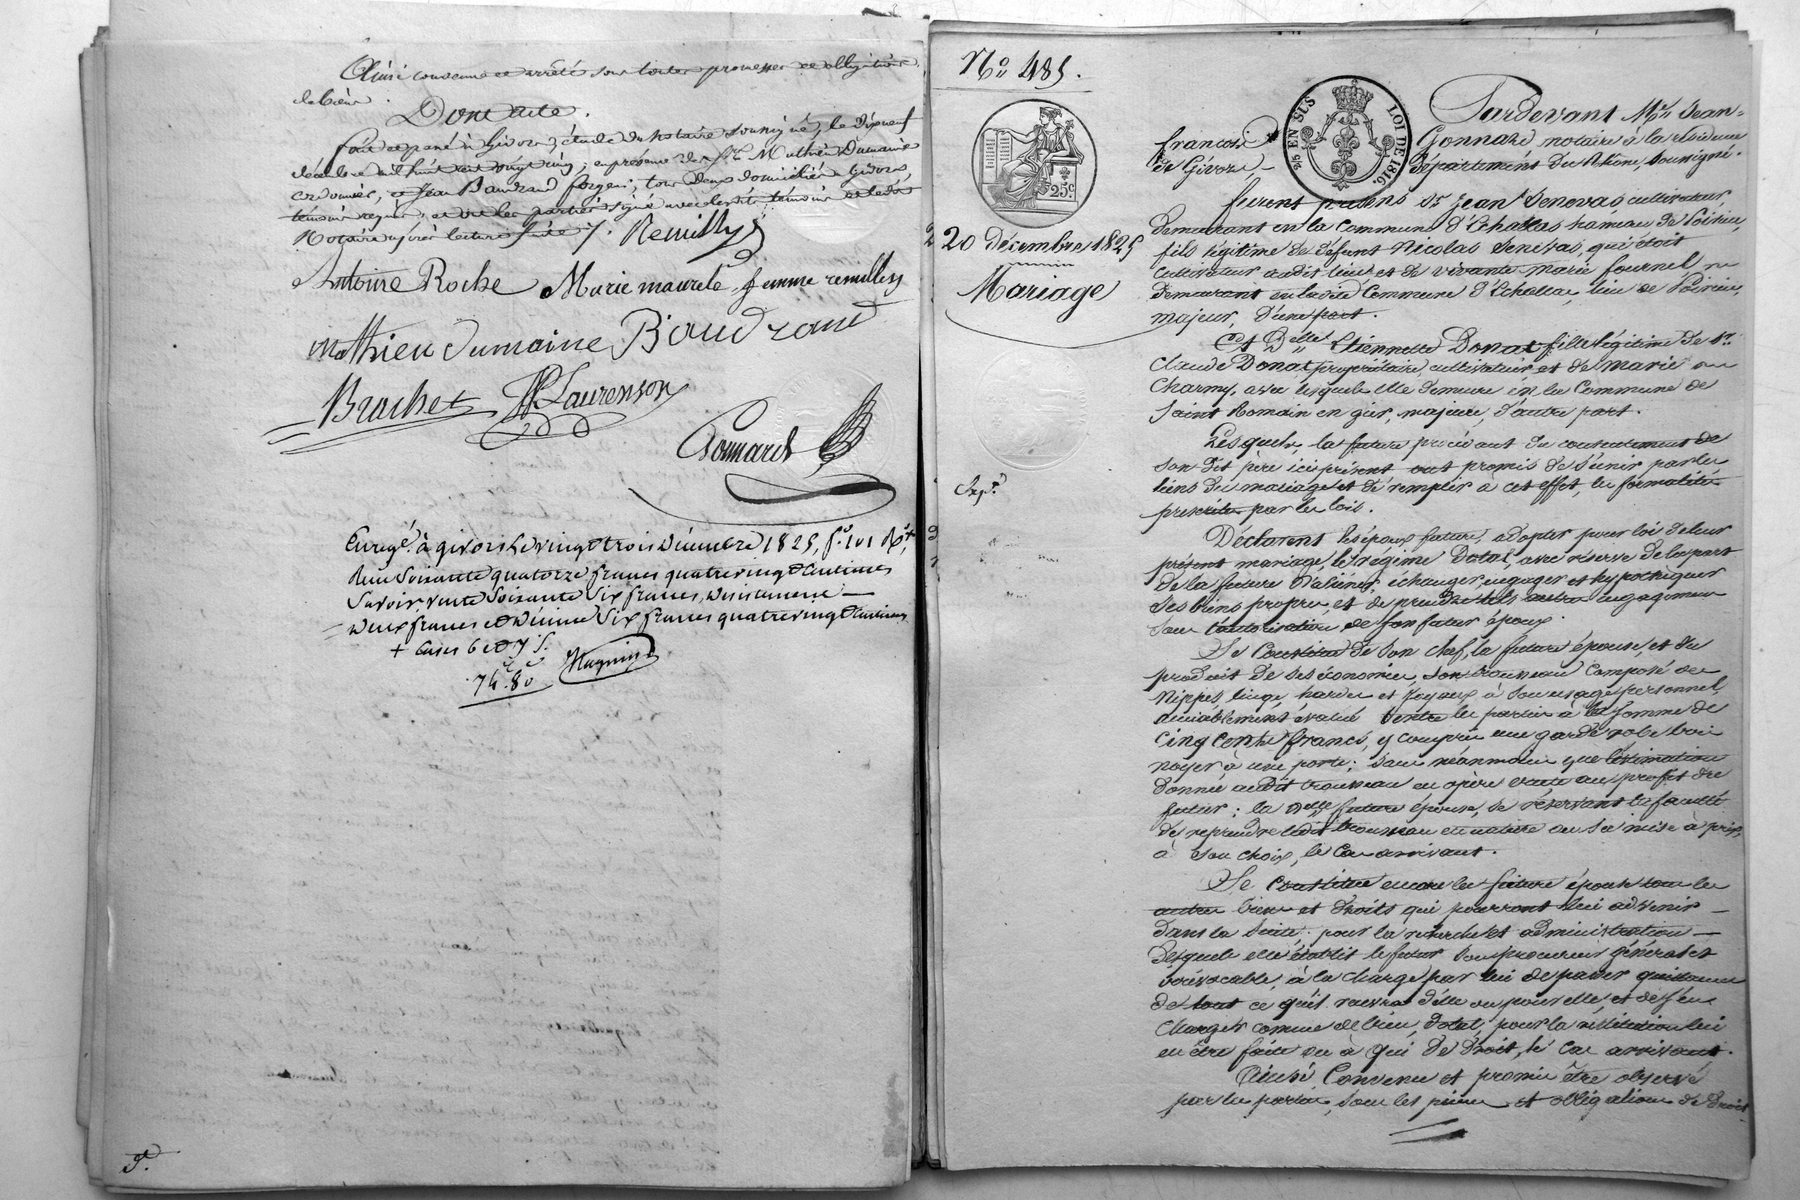 Ainsi convenu et arrêté sous toutes promesses et obligations
de biens.
Dont acte.
fait et passé à Givors, étude du notaire soussigné, le dixneuf
décembre mil huit cent vingt cinq, en présence des Srs Mathieu Dumaine
cordonnier, et Jean Baudrand forgeur, tous deux domiciliés à Givors,
témoins requis, et ont les parties signé avec lesdits témoins et ledit
Notaire après lecture faite ./. Remillys
Antoine Roche Marie maurete femme remillys
mathieu Dumaine Baudrand
Brachet Laurenson
Gonnard
Enregé. à givors Le vingt trois Décembre 1825, fo. 101 Ro. +
Reçu Soixante quatorze francs quatre vingt Centimes
Savoir, vente Soixante Six francs,
Deux francs et Décime Six francs quatre vingt Centimes
+ Cases 6 et 7 S.
74.f 80.c
P.
No. 485.
25 EN SUS LOI DE 1816.
25c.
20 décembre 1825
Mariage
Exp.on
Pardevant Me. Jean-
françois Gonnard notaire à la résidence
de Givors, département du Rhône, soussigné.
furent présens Sr. Jean Senevas cultivateur,
demeurant en la Commune d'Echallas hameau de
fils légitime de défunt Nicolas Senevas, qui étoit
cultivateur audit lieu et de vivante marie fournel, ve
demeurant en ladite Commune d'Echallas, lieu de
majeur, d'une part.
Et Delle. Etiennette Donat fille légitime de Sr.
Claude Donat propriétaire cultivateur et de marie
Charmy, avec lesquels elle demeure en la Commune de
Saint Romain en gier, majeure, d'autre part.
Lesquels, la future procédant du consentement de
son dit père ici présent ont promis de s'unir par les
liens du mariage et de remplir à cet effet, les formalités
prescrites par les lois.
Déclarent les époux futurs, adopter pour loi de leur
présent mariage, le régime Dotal, avec réserve de la part
de la future d'aliéner, échanger, engager et hypothéquer
ses biens propres, et de prendre tels autres engagemens
sous l'autorisation de son futur époux.
Se Constitue de son chef, la future épouse, et du
produit de ses économies, son trousseau composé de
Nippes, linges, hardes et joyaux à son usage personnel,
amiablement évalué entre les parties à la somme de
Cinq Cents francs, y compris une garde robe bois
noyer à une porte; sans néanmoins que l'estimation
donnée audit trousseau en opère vente au profit du
futur; la Delle future épouse, se réservant la faculté
de reprendre ledit trousseau en nature ou sa mise à prix,
à son choix, le Cas arrivant.
Se Constitue encore la future épouse tous les
autres biens et droits qui pourront lui advenir
dans la suite; pour la recherche et administration
desquels elle établit le futur son procureur général et
irrévocable, à la charge par lui de passer quittance
de tout ce qu'il recevra d'elle ou pour elle, et de s'en
Charger comme de bien, dotal, pour la restitution lui
en être faite ou à qui de droit, le Cas arrivant.
Ainsi Convenu et promis être observé
par les parties, sous les peines et obligations de droit